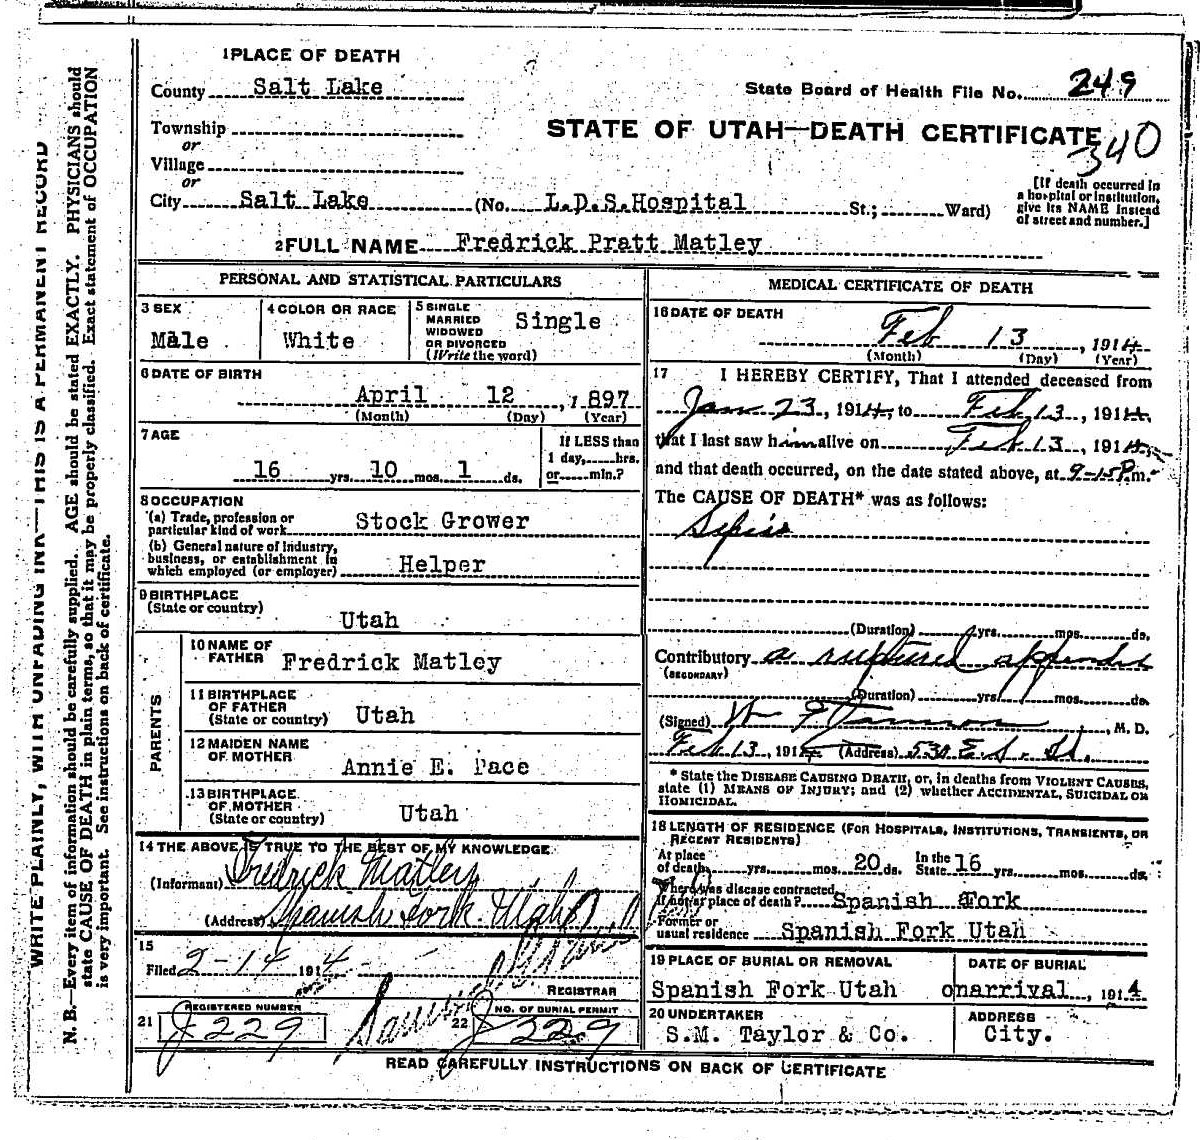 1 PLACE OF DEATH
County Salt Lake
State Board of Health File No. 249
Township
or
Village
or
STATE OF UTAH—DEATH CERTIFICATE
340
City Salt Lake (No. L.D.S.Hospital St.; Ward)
[If death occurred in
a hospital or institution,
give its NAME instead
of street and number.]
2 FULL NAME Fredrick Pratt Matley
PERSONAL AND STATISTICAL PARTICULARS
3 SEX
Male
4 COLOR OR RACE
White
5 SINGLE
MARRIED
WIDOWED
OR DIVORCED
(Write the word)
Single
6 DATE OF BIRTH
April 12, 1897
(Month) (Day) (Year)
7 AGE
16 yrs. 10 mos. 1 ds.
If LESS than
1 day, hrs.
or min.?
8 OCCUPATION
(a) Trade, profession or
particular kind of work Stock Grower
(b) General nature of industry,
business, or establishment in
which employed (or employer) Helper
9 BIRTHPLACE
(State or country)
Utah
PARENTS
10 NAME OF
FATHER Fredrick Matley
11 BIRTHPLACE
OF FATHER
(State or country) Utah
12 MAIDEN NAME
OF MOTHER Annie E. Pace
13 BIRTHPLACE
OF MOTHER
(State or country) Utah
14 THE ABOVE IS TRUE TO THE BEST OF MY KNOWLEDGE
(Informant) Fredrick Matley
(Address) Spanish Fork Utah
15
Filed 2-14 1914
REGISTRAR
21 REGISTERED NUMBER
J 229
22 NO. OF BURIAL PERMIT
J 229
MEDICAL CERTIFICATE OF DEATH
16 DATE OF DEATH
Feb 13, 1914
(Month) (Day) (Year)
17 I HEREBY CERTIFY, That I attended deceased from
Jan 23, 1914, to Feb 13, 1914
that I last saw him alive on Feb 13, 1914,
and that death occurred, on the date stated above, at 9-15P.m.
The CAUSE OF DEATH* was as follows:
Sepsis
(Duration) yrs. mos. ds.
Contributory a ruptured appendix
(SECONDARY)
(Duration) yrs. mos. ds.
(Signed) Wm F, M.D.
Feb 13, 1914 (Address) 530 E. S. St.
* State the DISEASE CAUSING DEATH, or, in deaths from VIOLENT CAUSES,
state (1) MEANS OF INJURY; and (2) whether ACCIDENTAL, SUICIDAL OR
HOMICIDAL.
18 LENGTH OF RESIDENCE (FOR HOSPITALS, INSTITUTIONS, TRANSIENTS, OR
RECENT RESIDENTS)
At place
of death yrs. mos. 20 ds. In the
State 16 yrs. mos. ds.
Where was disease contracted
if not at place of death? Spanish Fork
Former or
usual residence Spanish Fork Utah
19 PLACE OF BURIAL OR REMOVAL
Spanish Fork Utah
DATE OF BURIAL
onarrival, 1914
20 UNDERTAKER
S.M. Taylor & Co.
ADDRESS
City.
READ CAREFULLY INSTRUCTIONS ON BACK OF CERTIFICATE
WRITE PLAINLY, WITH UNFADING INK—THIS IS A PERMANENT RECORD
N. B.—Every item of information should be carefully supplied. AGE should be stated EXACTLY. PHYSICIANS should
state CAUSE OF DEATH in plain terms, so that it may be properly classified. Exact statement of OCCUPATION
is very important. See instructions on back of certificate.